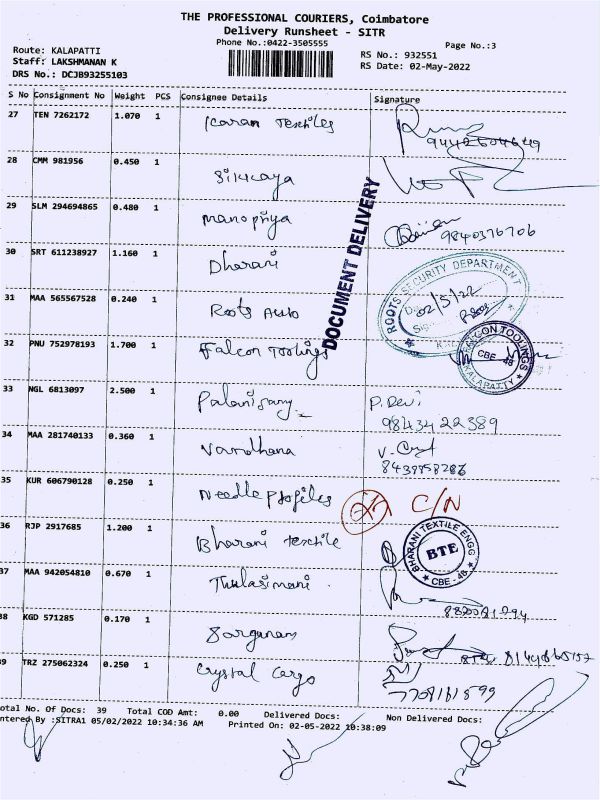 THE PROFESSIONAL COURIERS, Coimbatore
Delivery Runsheet - SITR
Phone No.:0422-3505555
Page No.:3
Route: KALAPATTI
Staff: LAKSHMANAN K
DRS No.: DCJB93255103
RS No.: 932551
RS Date: 02-May-2022
S No Consignment No Weight PCS Consignee Details Signature
27 TEN 7262172 1.070 1 Karan Textiles
28 CMM 981956 0.450 1
29 SLM 294694865 0.480 1 Manopriya 9840376706
30 SRT 611238927 1.160 1 Dharani
DOCUMENT DELIVERY
ROOTS SECURITY DEPARTMENT
02/5/22
31 MAA 565567528 0.240 1 Roots Auto
32 PNU 752978193 1.700 1 Falcon Toolings
FALCON TOOLINGS
CBE - 48
KALAPATTY
33 NGL 6813097 2.500 1 P. Devi
9843422389
34 MAA 281740133 0.360 1 Vardhana
35 KUR 606790128 0.250 1 Needle profiles C/N
36 RJP 2917685 1.200 1 Bharani textile
BHARANI TEXTILE ENGG
BTE
CBE - 48
37 MAA 942054810 0.670 1 Thulasimani
38 KGD 571285 0.170 1
39 TRZ 275062324 0.250 1 Crystal Cargo
7708161599
otal No. Of Docs: 39 Total COD Amt: 0.00 Delivered Docs: Non Delivered Docs:
ntered By :SITRA1 05/02/2022 10:34:36 AM Printed On: 02-05-2022 10:38:09